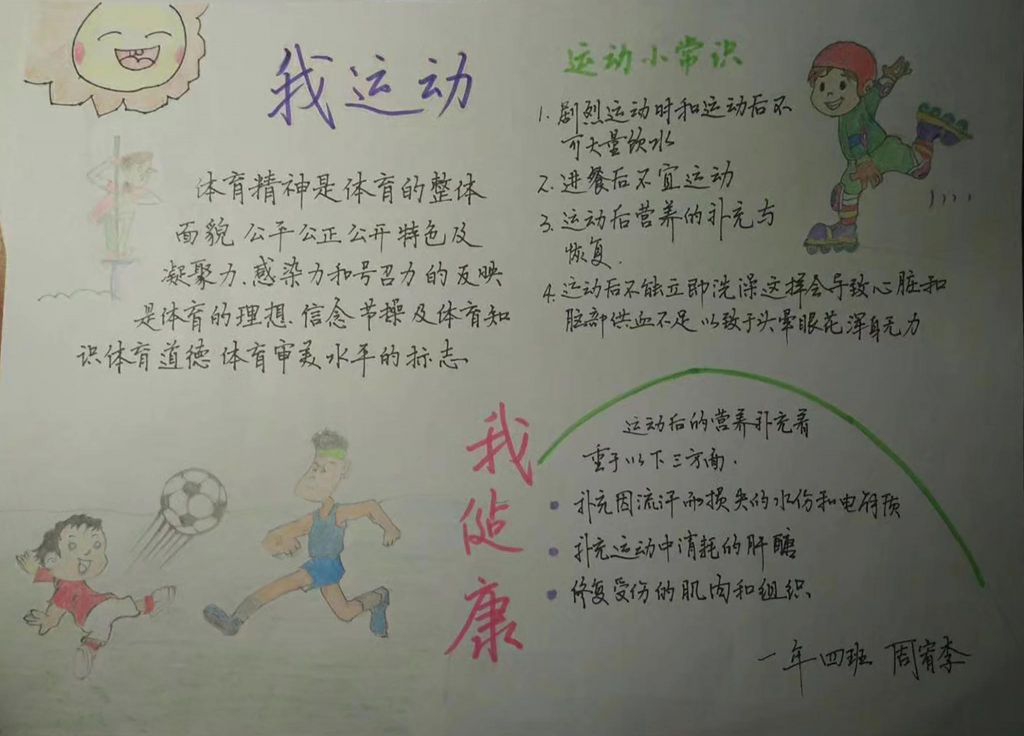 我运动
体育精神是体育的整体
面貌、公平公正公开特色及
凝聚力、感染力和号召力的反映
是体育的理想、信念、节操及体育知
识体育道德体育审美水平的标志。
运动小常识
1. 剧烈运动时和运动后不
可大量饮水
2. 进餐后不宜运动
3. 运动后营养的补充与
恢复.
4. 运动后不能立即洗澡这样会导致心脏和
脏部供血不足以致于头晕眼花浑身无力
我
健
康
运动后的营养补充着
重于以下三方面.
• 补充因流汗而损失的水份和电解质
• 补充运动中消耗的肝醣
• 修复受伤的肌肉和组织
一年四班 周宥李